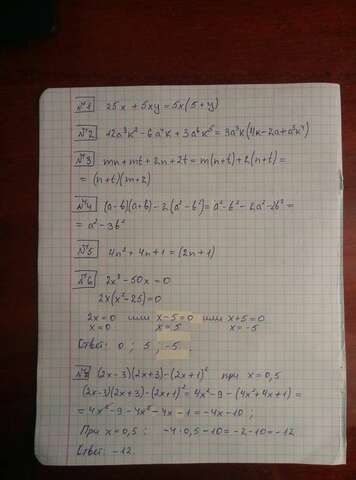 №1 25x + 5xy = 5x(5+y)
№2 12a³k² - 6a⁴k + 3a⁶k⁵ = 3a³k(4k - 2a + a³k⁴)
№3 mn + mt + 2n + 2t = m(n+t) + 2(n+t) =
= (n+t)(m+2)
№4 (a-b)(a+b) - 2(a² - b²) = a² - b² - 2a² - 2b² =
= a² - 3b²
№5 4n² + 4n + 1 = (2n+1)
№6 2x³ - 50x = 0
2x(x² - 25) = 0
2x = 0 или x - 5 = 0 или x + 5 = 0
x = 0 x = 5 x = -5
Ответ: 0 ; 5 ; -5 .
№7 (2x-3)(2x+3) - (2x+1)² при x = 0,5
(2x-3)(2x+3) - (2x+1)² = 4x² - 9 - (4x² + 4x + 1) =
= 4x² - 9 - 4x² - 4x - 1 = -4x - 10 ;
При x = 0,5 : -4·0,5 - 10 = -2 - 10 = -12
Ответ: -12.